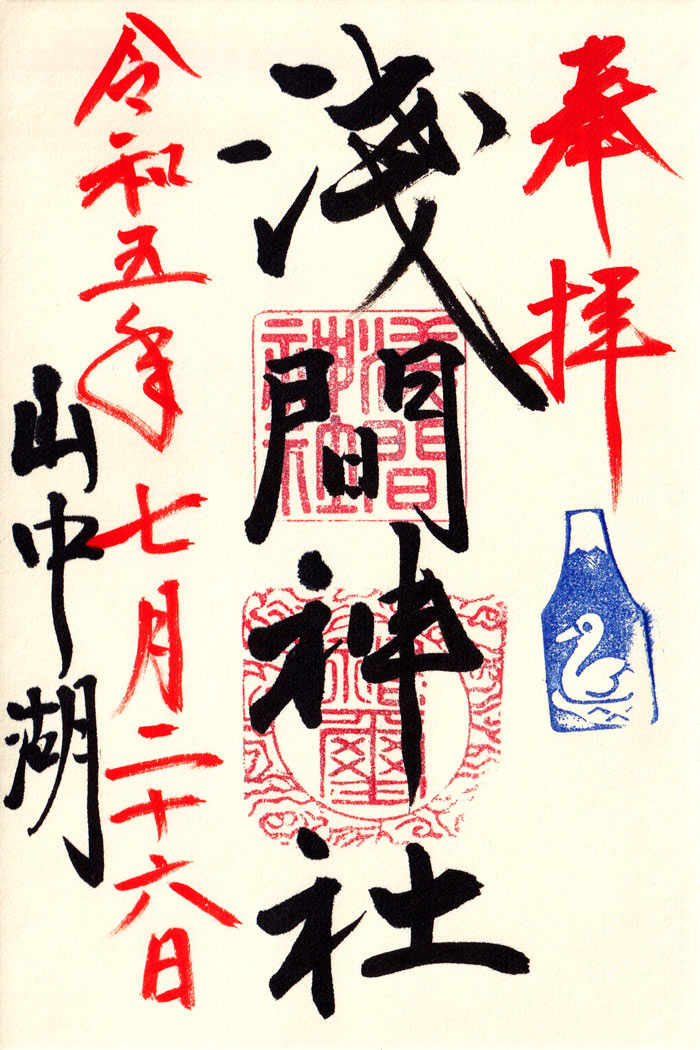 奉拝
淺間神社
淺間
神社
令和五年七月二十六日
山中湖